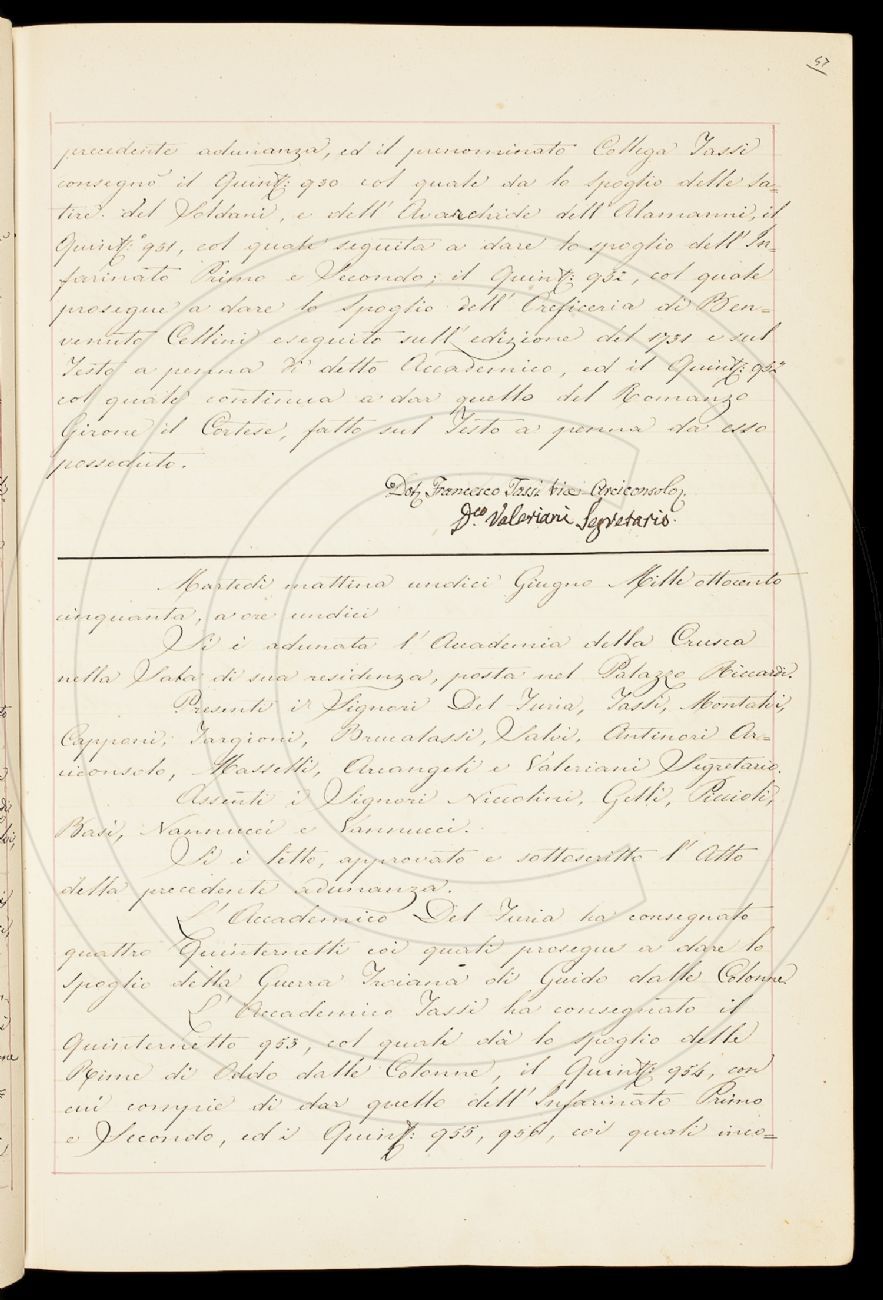 57
precedente adunanza, ed il prenominato Collega Tassi
consegnò il Quint: 950 col quale da lo spoglio delle Sa=
tire del Soldani, e dell'Avarchide dell'Alamanni, il
Quint:° 951, col quale seguita a dare lo spoglio dell'In=
farinato Primo e Secondo; il Quint: 952, col quale
prosegue a dare lo Spoglio dell'Oreficeria di Ben=
venuto Cellini eseguito sull'edizione del 1731 e sul
Testo a penna di detto Accademico, ed il Quint:
col quale continua a dar quello del Romanzo
Girone il Cortese, fatto sul Testo a penna da esso
posseduto.
Dot. Francesco Tassi Vice Arciconsolo
D.co Valeriani Segretario.
Martedì mattina undici Giugno Mille ottocento
cinquanta, a ore undici
Si è adunata l'Accademia della Crusca
nella Sala di sua residenza, posta nel Palazzo Riccardi.
Presenti i Signori Del Furia, Tassi, Montalvi,
Capponi, Targioni, Brucalassi, Salvi, Antinori Ar=
ciconsolo, Masselli, Arcangeli e Valeriani Segretario.
Assenti i Signori Niccolini, Gelli, Piccioli,
Basi, Nannucci e Vannucci.
Si è letto, approvato e sottoscritto l'Atto
della precedente adunanza.
L'Accademico Del Furia ha consegnato
quattro Quinternetti coi quali prosegue a dare lo
spoglio della Guerra Troiana di Guido dalle Colonne.
L'Accademico Tassi ha consegnato il
Quinternetto 953, col quale dà lo spoglio delle
Rime di Oddo dalle Colonne, il Quint: 954, con
cui compie di dar quello dell'Infarinato Primo
e Secondo, ed i Quint: 955, 956, coi quali inco=